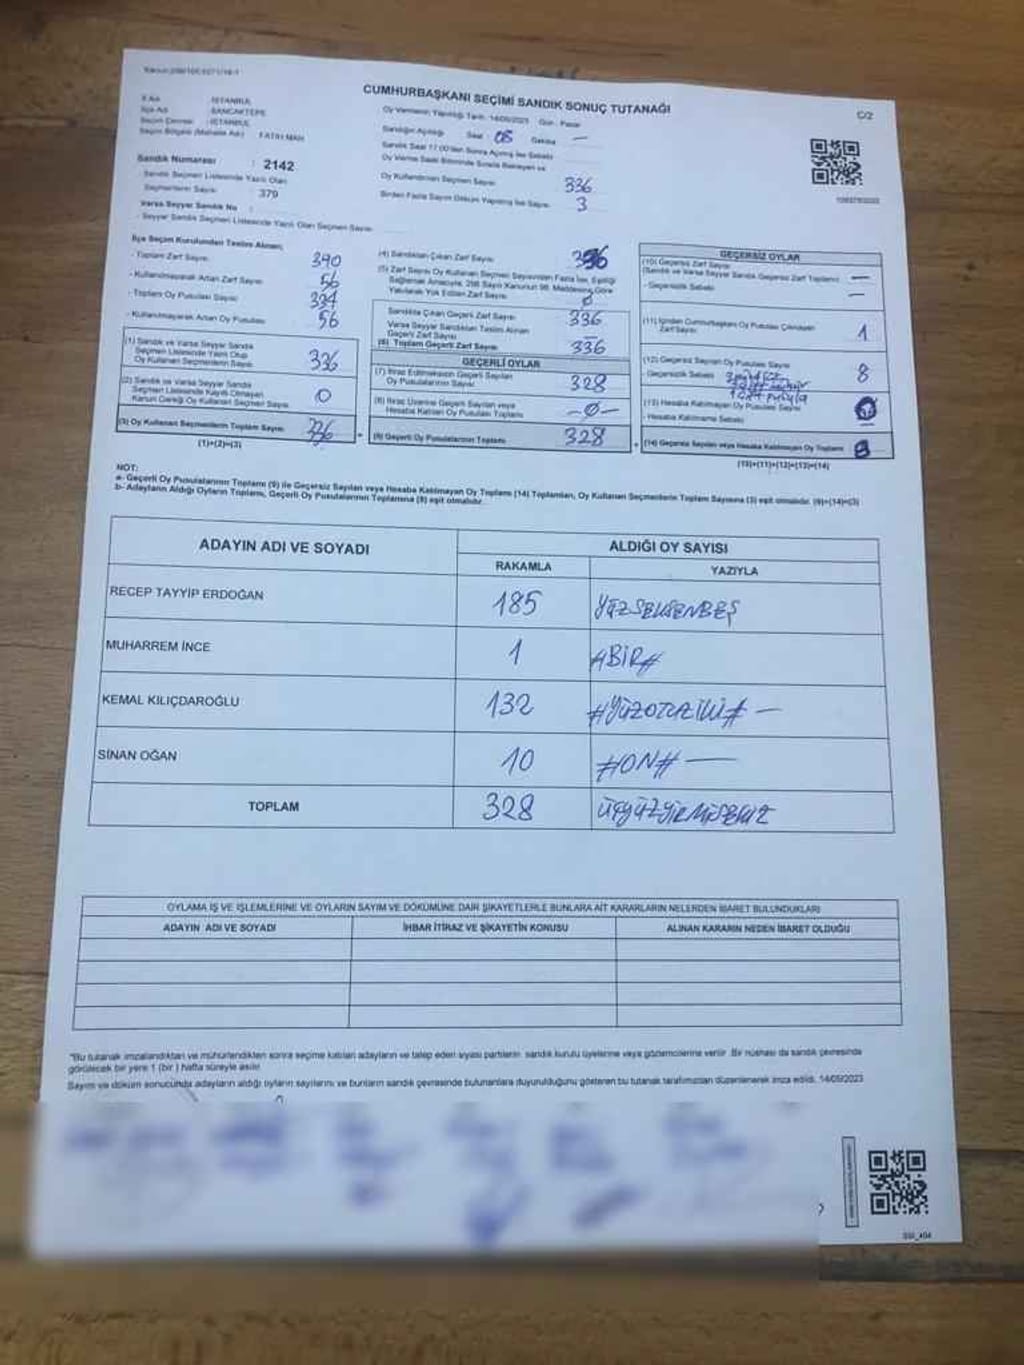 CUMHURBAŞKANI SEÇİMİ SANDIK SONUÇ TUTANAĞI
C/2
İl Adı : İSTANBUL
İlçe Adı : SANCAKTEPE
Seçim Çevresi : İSTANBUL
Seçim Bölgesi (Mahalle Adı) : FATİH MAH
Sandık Numarası : 2142
Sandık Seçmen Listesinde Yazılı Olan
Seçmenlerin Sayısı : 379
Varsa Seyyar Sandık No :
- Seyyar Sandık Seçmen Listesinde Yazılı Olan Seçmen Sayısı:
Oy Vermenin Yapıldığı Tarih: 14/05/2023 Gün: Pazar
Sandığın Açıldığı Saat: 08 Dakika —
Sandık Saat 17.00'den Sonra Açılmış İse Sebebi
Oy Verme Saati Bitiminde Sırada Bekleyen ve
Oy Kullandırılan Seçmen Sayısı 336
Birden Fazla Sayım Döküm Yapılmış İse Sayısı 3
İlçe Seçim Kurulundan Teslim Alınan;
- Toplam Zarf Sayısı: 390
- Kullanılmayarak Artan Zarf Sayısı: 56
- Toplam Oy Pusulası Sayısı:
- Kullanılmayarak Artan Oy Pusulası: 56
(1) Sandık ve Varsa Seyyar Sandık
Seçmen Listesinde Yazılı Olup
Oy Kullanan Seçmenlerin Sayısı 336
(2) Sandık ve Varsa Seyyar Sandık
Seçmen Listesinde Kayıtlı Olmayan
Kanun Gereği Oy Kullanan Seçmen Sayısı 0
(3) Oy Kullanan Seçmenlerin Toplam Sayısı 336
(1)+(2)=(3)
(4) Sandıktan Çıkan Zarf Sayısı 336
(5) Zarf Sayısı Oy Kullanan Seçmen Sayısından Fazla İse, Eşitliği
Sağlamak Amacıyla, 298 Sayılı Kanunun 98. Maddesine Göre
Yakılarak Yok Edilen Zarf Sayısı 0
Sandıkta Çıkan Geçerli Zarf Sayısı 336
Varsa Seyyar Sandıktan Teslim Alınan
Geçerli Zarf Sayısı —
(6) Toplam Geçerli Zarf Sayısı 336
GEÇERLİ OYLAR
(7) İtiraz Edilmeksizin Geçerli Sayılan
Oy Pusulalarının Sayısı 328
(8) İtiraz Üzerine Geçerli Sayılan veya
Hesaba Katılan Oy Pusulası Toplamı -0-
(9) Geçerli Oy Pusulalarının Toplamı 328
GEÇERSİZ OYLAR
(10) Geçersiz Zarf Sayısı
(Sandık ve Varsa Seyyar Sandık Geçersiz Zarf Toplamı) —
- Geçersizlik Sebebi —
(11) İçinden Cumhurbaşkanı Oy Pusulası Çıkmayan
Zarf Sayısı 1
(12) Geçersiz Sayılan Oy Pusulası Sayısı 8
- Geçersizlik Sebebi
(13) Hesaba Katılmayan Oy Pusulası Sayısı
- Hesaba Katılmama Sebebi
(14) Geçersiz Sayılan veya Hesaba Katılmayan Oy Toplamı 8
(10)+(11)+(12)+(13)=(14)
NOT:
a- Geçerli Oy Pusulalarının Toplamı (9) ile Geçersiz Sayılan veya Hesaba Katılmayan Oy Toplamı (14) Toplamları, Oy Kullanan Seçmenlerin Toplam Sayısına (3) eşit olmalıdır. (9)+(14)=(3)
b- Adayların Aldığı Oyların Toplamı, Geçerli Oy Pusulalarının Toplamına (9) eşit olmalıdır.
ADAYIN ADI VE SOYADI ALDIĞI OY SAYISI
RAKAMLA YAZIYLA
RECEP TAYYİP ERDOĞAN 185 YÜZSEKSENBEŞ
MUHARREM İNCE 1 #BİR#
KEMAL KILIÇDAROĞLU 132 #YÜZOTUZİKİ# —
SİNAN OĞAN 10 #ON# —
TOPLAM 328 ÜÇYÜZYİRMİSEKİZ
OYLAMA İŞ VE İŞLEMLERİNE VE OYLARIN SAYIM VE DÖKÜMÜNE DAİR ŞİKAYETLERLE BUNLARA AİT KARARLARIN NELERDEN İBARET BULUNDUKLARI
ADAYIN ADI VE SOYADI İHBAR İTİRAZ VE ŞİKAYETİN KONUSU ALINAN KARARIN NEDEN İBARET OLDUĞU
*Bu tutanak imzalandıktan ve mühürlendikten sonra seçime katılan adayların ve talep eden siyasi partilerin sandık kurulu üyelerine veya gözlemcilerine verilir. Bir nüshası da sandık çevresinde
görülecek bir yere 1 (bir) hafta süreyle asılır.
Sayım ve döküm sonucunda adayların aldığı oyların sayılarını ve bunların sandık çevresinde bulunanlara duyurulduğunu gösteren bu tutanak tarafımızdan düzenlenerek imza edildi. 14/05/2023